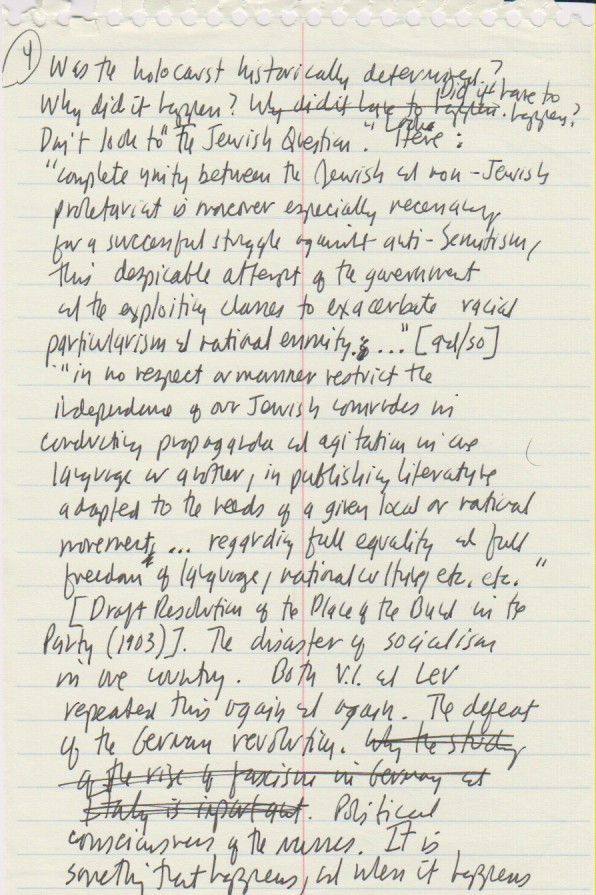 4
Was the holocaust historically determined?
Why did it happen? Why did it have to happen. Did it have to happen?
Don't look to "the Jewish Question." Here:
"complete unity between the Jewish and non-Jewish
proletariat is moreover especially necessary
for a successful struggle against anti-Semitism,
this despicable attempt of the government
and the exploiting classes to exacerbate racial
particularism and national enmity; ..." [and/so]
"in no respect or manner restrict the
independence of our Jewish comrades in
conducting propaganda and agitation in one
language or another, in publishing literature
adapted to the needs of a given local or national
movement, ... regarding full equality and full
freedom of language, national culture, etc. etc."
[Draft Resolution of the Place of the Bund in the
Party (1903)]. The disaster of socialism
in one country. Both V.I. and Lev
repeated this again and again. The defeat
of the German revolution. Why the study
of the rise of fascism in Germany and
Italy is important. Political
consciousness of the masses. It is
something that happens, and when it happens